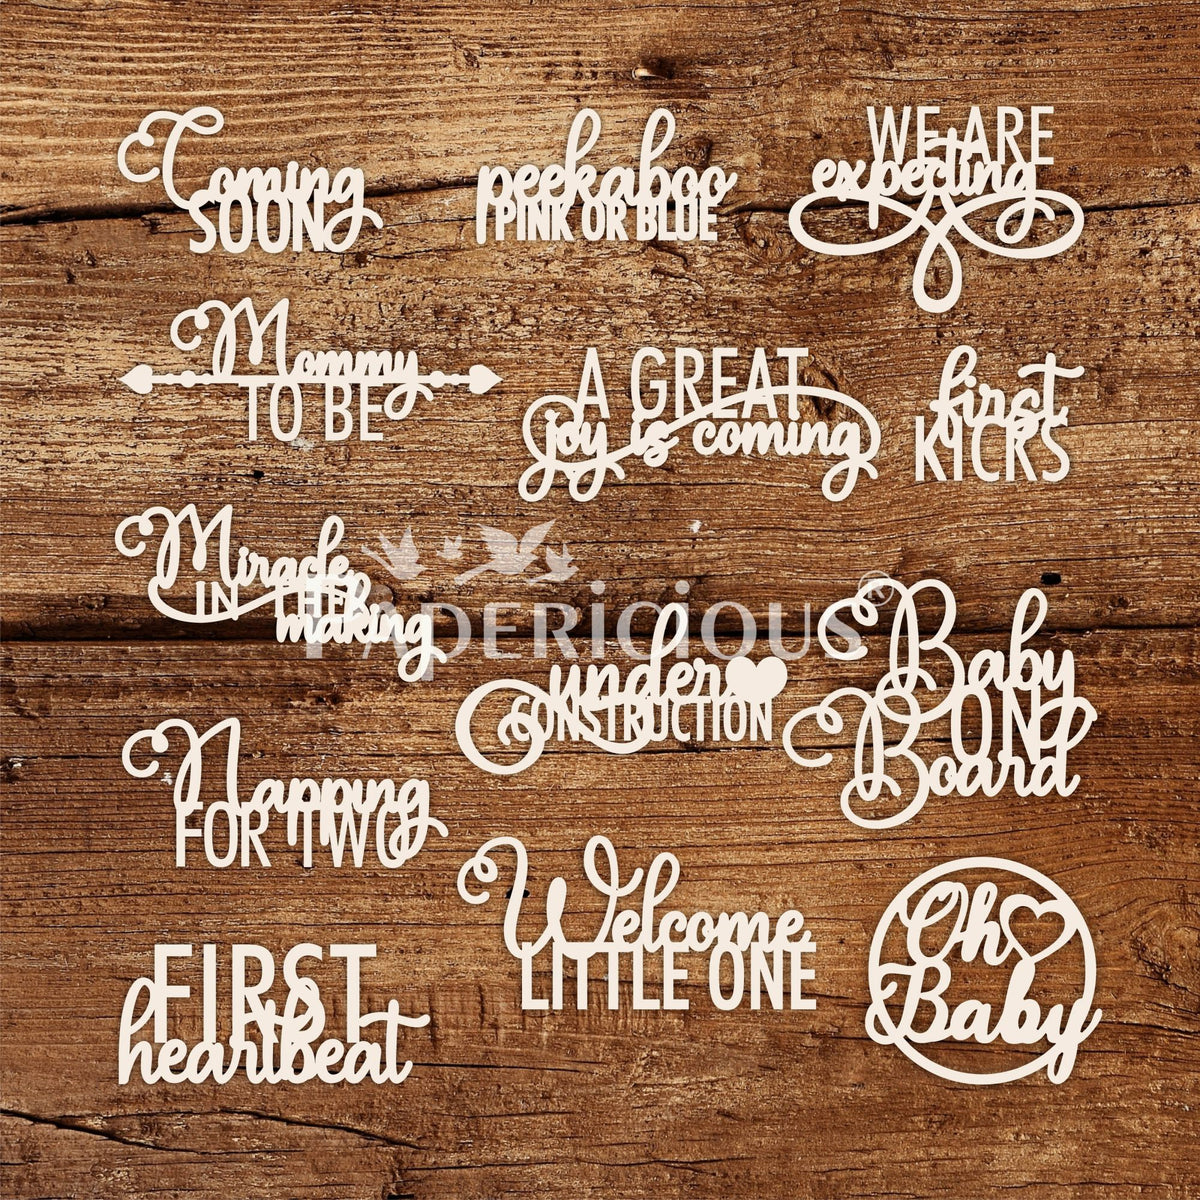 Coming
SOON
peekaboo
PINK OR BLUE
WE ARE
expecting
Mommy
TO BE
A GREAT
joy is coming
first
KICKS
Miracle
IN THE
making
PAPERiCiOUS®
under
CONSTRUCTION
Baby
ON
Board
Napping
FOR TWO
Welcome
LITTLE ONE
Oh
Baby
FIRST
heartbeat